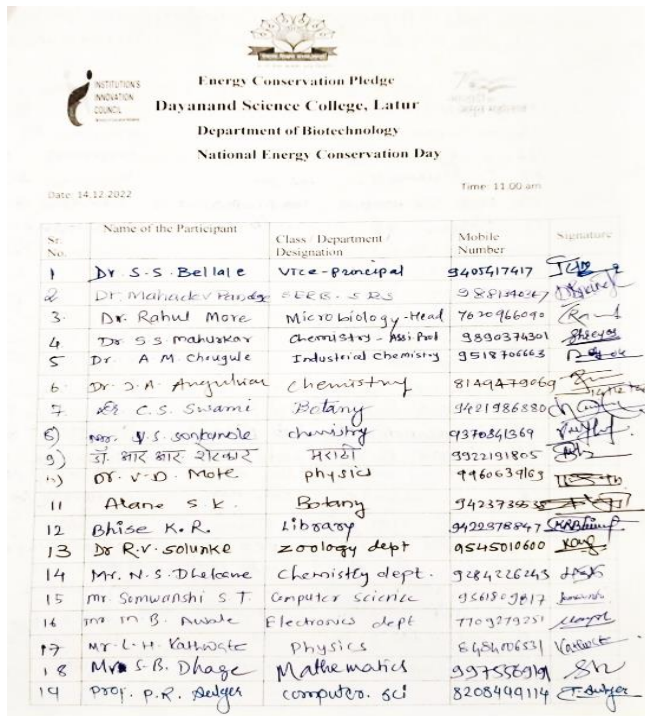 INSTITUTION'S
INNOVATION
COUNCIL
Energy Conservation Pledge
Dayanand Science College, Latur
Department of Biotechnology
National Energy Conservation Day
Date: 14.12.2022 Time: 11.00 am
Sr. No. Name of the Participant Class / Department / Designation Mobile Number Signature
1 Dr. S.S. Bellale Vice-principal 9405417417
2 Dr. Mahadev SERB-SRS
3. Dr. Rahul More Microbiology-Head 7620966090
4 Dr S S Mahurkar Chemistry-Assi Prof 9890374301
5 Dr. A M Chougule Industrial Chemistry 9518706663
6. Dr. J.A. Angulwar Chemistry 8149479069
7. C.S. Swami Botany 9421986880
8) V.S. Sontakole chemistry 9370841369
9) डॉ. आर आर शेटकार मराठी 9922191805
10) Dr. V.D. Mote physics
11 Alane S.K. Botany
12 Bhise K.R. Library 9422378847
13 Dr R.V. Solunke Zoology dept 9545010600
14 Mr. N.S. Dhekane Chemistry dept. 9284226245
15 Mr Somwanshi S T. Computer science
16 M B. Awale Electronics dept 7709279251
17 Mr. L.H. Kathwate Physics
18 Mr S.B. Dhage Mathematics
19 Prof. P.R. computer. sci 8208449114